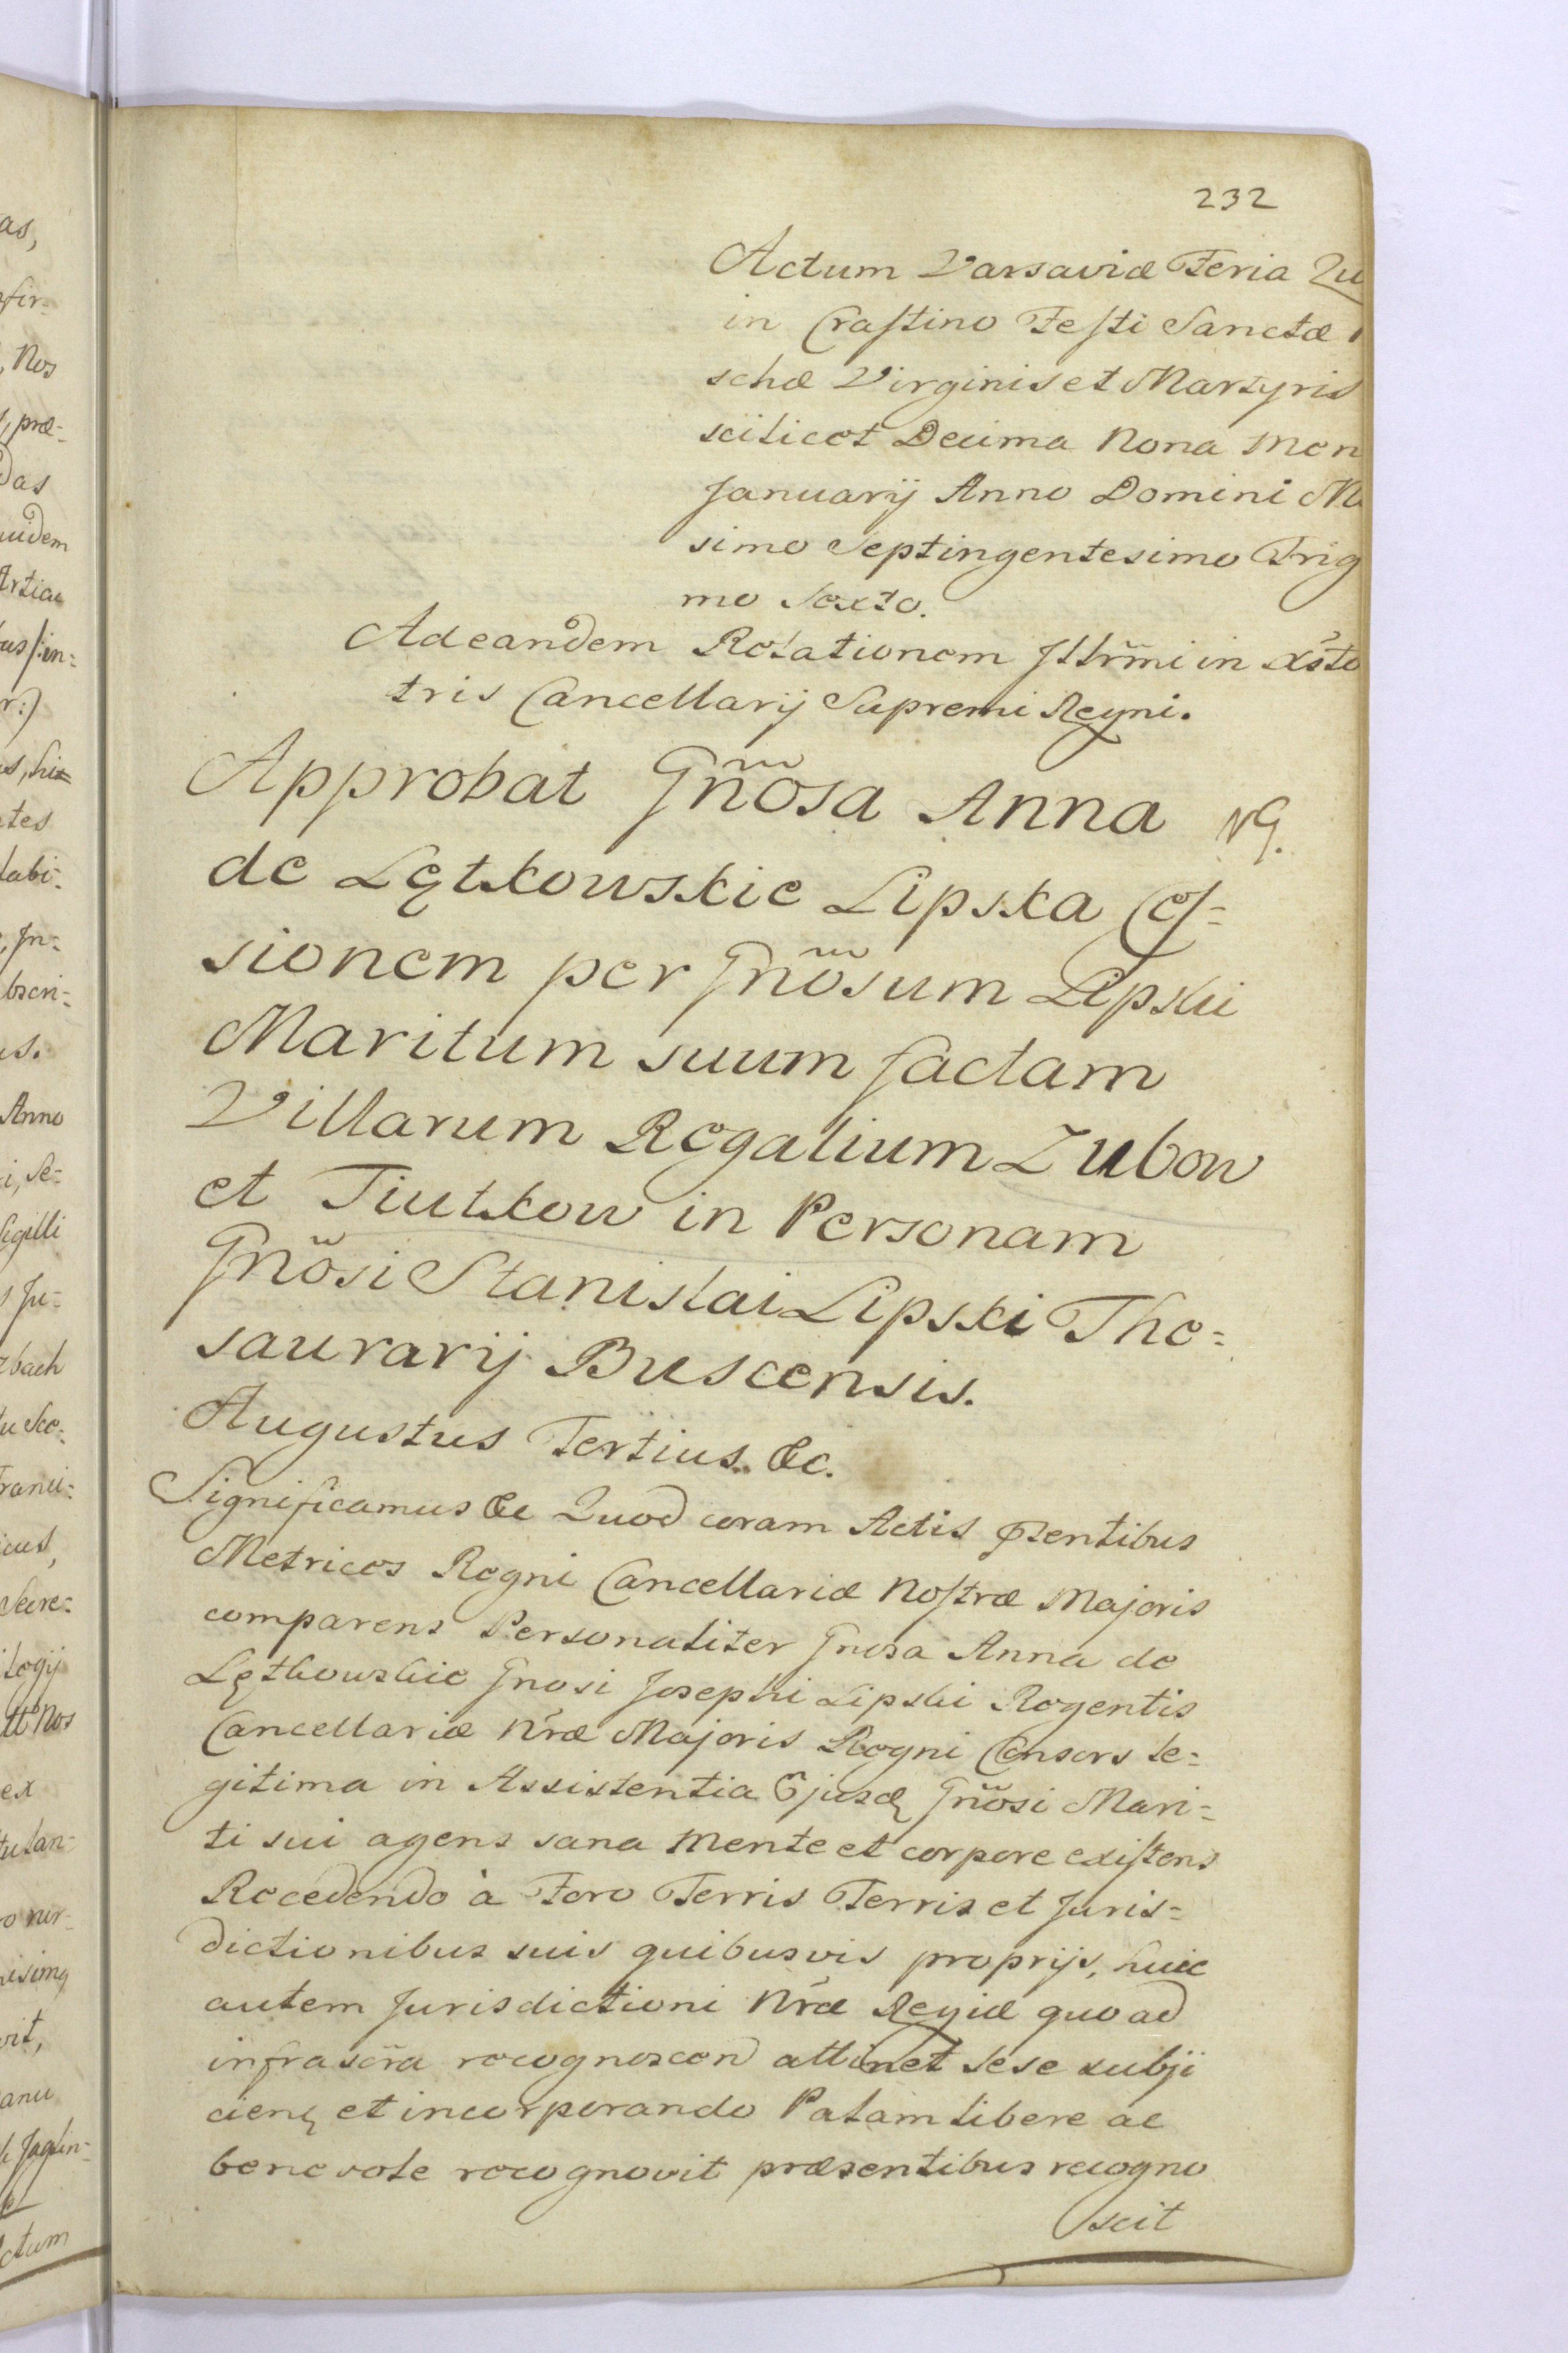 232
Actum Varsaviæ Feria Qu
in Craſtino Feſti Sanctæ
schæ Virginis et Martyris
scilicet Decima Nona Men
Januarij Anno Domini M
simo Septingentesimo Trig
mo Sexto.
Ad eandem Relationem Jllr̃mi in Xs̃to
tris Cancellarij Supremi Regni.
Approbat Gñosa Anna NG.
de Lętkowskie Lipska Ceſ=
sionem per Gñosum Lipski
Maritum suum factam
Villarum Regalium Zubow
et Tiutkow in Personam
Gñosi Stanislai Lipski The=
saurarij Buscensis.
Augustus Tertius. &c.
Significamus &c Quod coram Actis pꝛentibus
Metrices Regni Cancellariæ Noſtræ Majoris
comparens Personaliter Gnosa Anna de
Lętkowskie Gnosi Josephi Lipski Regentis
Cancellariæ Nr̃æ Majoris Regni Consors le=
gitima in Assistentia Ejusdꝫ Gñosi Mari=
ti sui agens sana Mente et corpore exiſtens
Recedendo à Foro Terris Terris et Juris=
dictionibus suis quibusvis proprijs, huic
autem Jurisdictioni Nr̃æ Regiæ quoad
infrascr̃a recognoscend attinet sese subji
cienꝫ et incorporando Palam libere ac
benevole recognovit præsentibus recogno
scit
as,
nfir=
, Nos
præ=
das
uidem
Artiau
us/:in=
r:)
tes
labi=
, Jn=
bscri=
us.
Anno
i, Se=
Sigilli
s Ju=
zbach
u Sce=
Franci=
cus,
Secre=
ilogij
tt Nos
ex
tulan=
vit,
anu
ctum